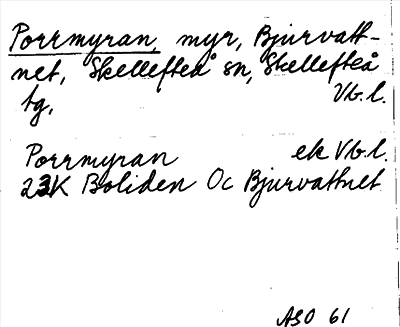 Porrmyran, myr, Bjurvatt-
net, Skellefteå sn, Skellefteå
tg, Vb.l.
Porrmyran ek Vb.l.
23K Boliden Oc Bjurvattnet
ASO 61